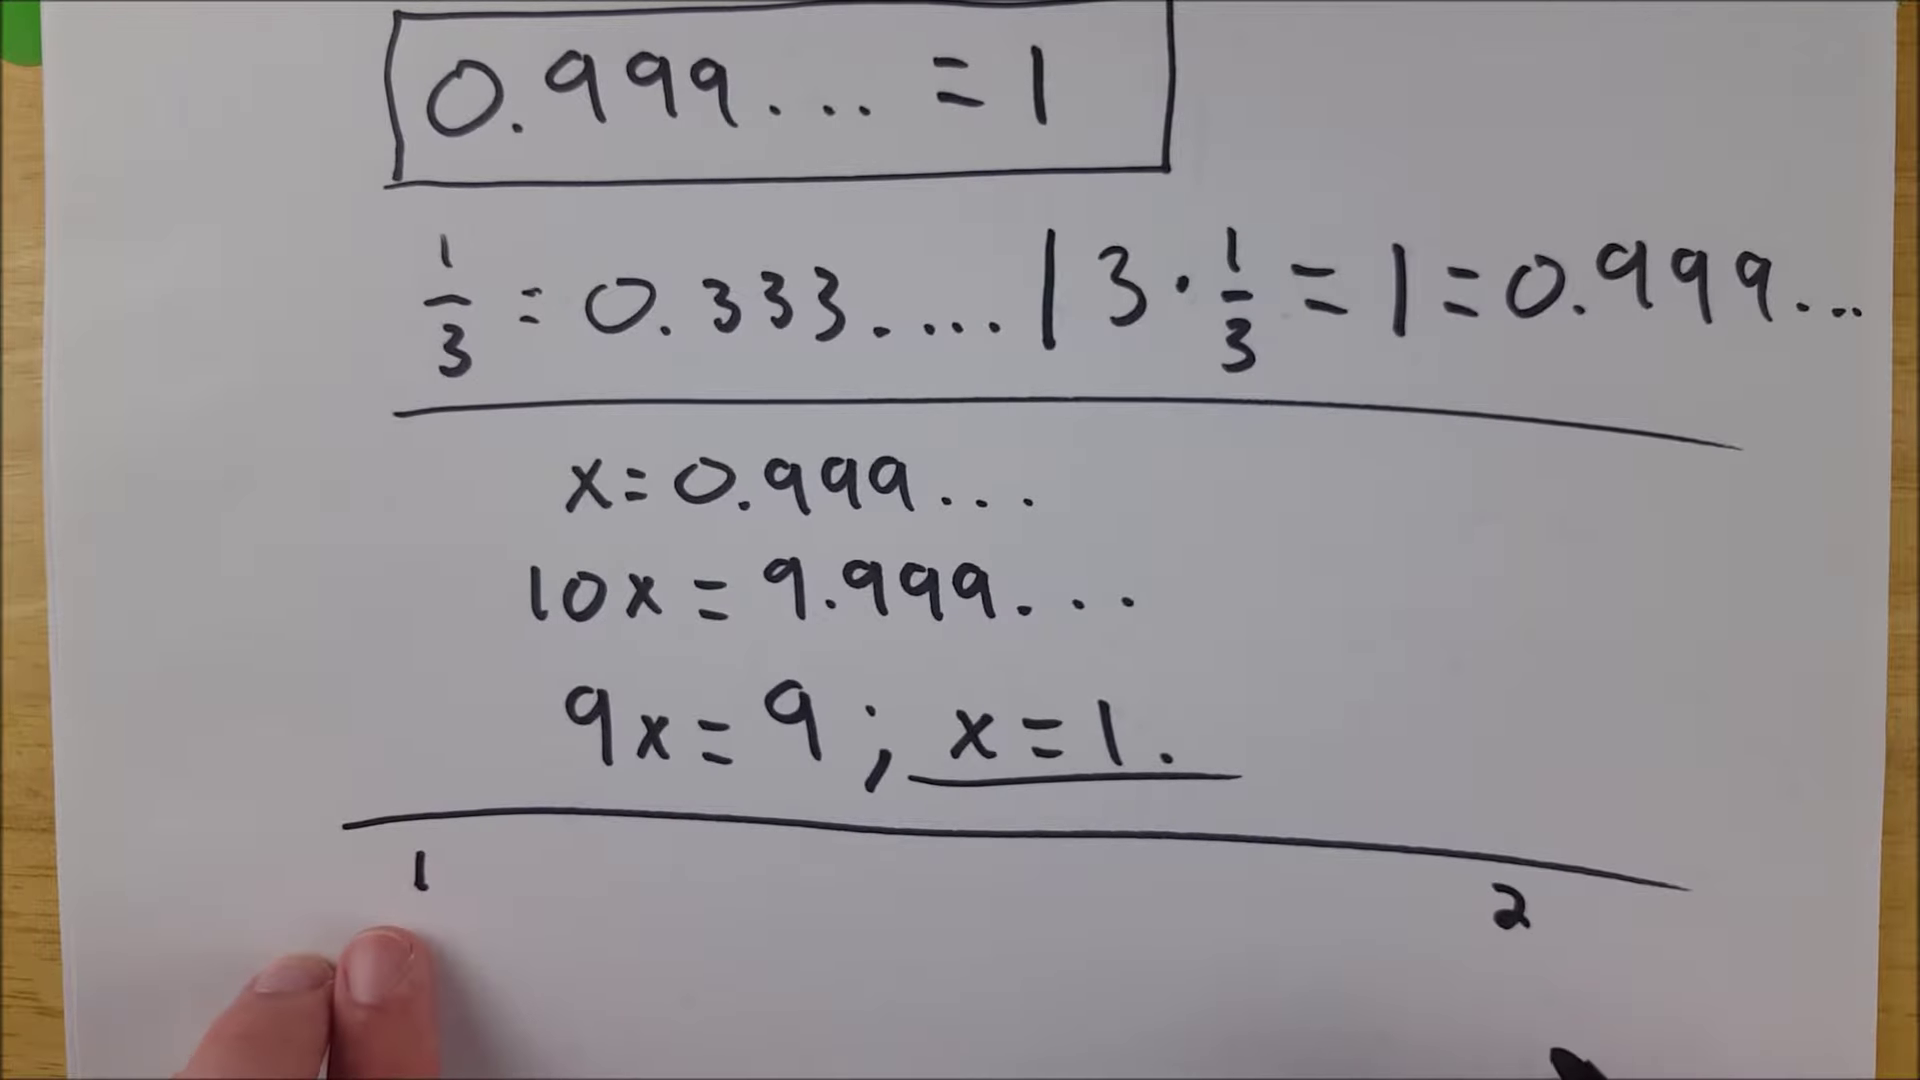 0.999... = 1
1/3 = 0.333.... | 3·1/3 = 1 = 0.999...
x = 0.999...
10x = 9.999...
9x = 9 ; x = 1.
1 2